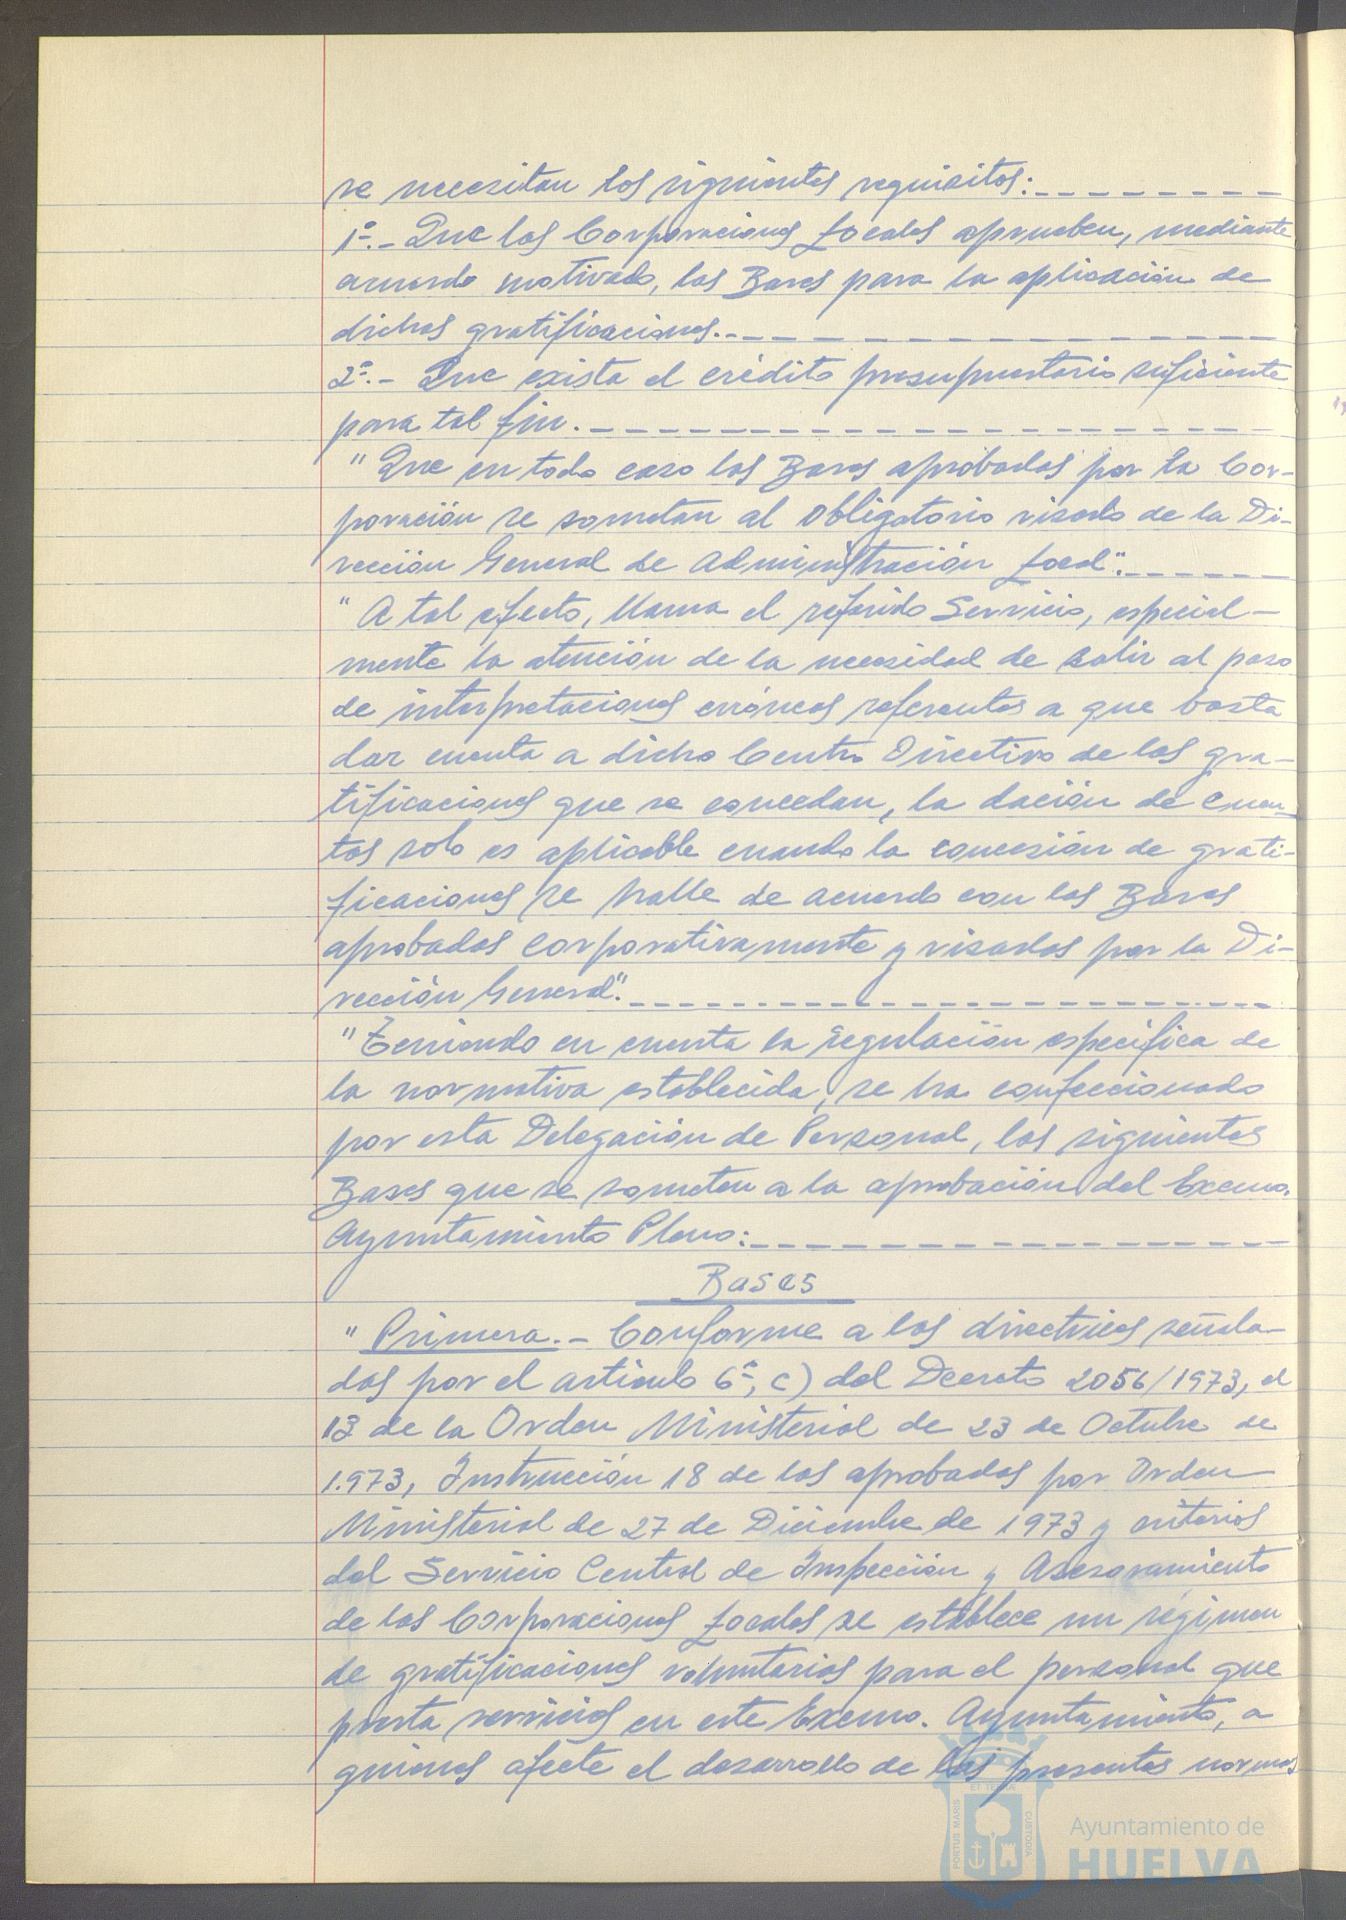 se necesitan los siguientes requisitos:
1º.- Que las Corporaciones Locales aprueben, mediante
acuerdo motivado, las Bases para la aplicación de
dichas gratificaciones.-
2º.- Que exista el crédito presupuestario suficiente
para tal fin.
"Que en todo caso las Bases aprobadas por la Cor-
poración se sometan al obligatorio visado de la Di-
rección General de Administración Local".
"A tal efecto, llama el referido Servicio, especial-
mente la atención de la necesidad de salir al paso
de interpretaciones erróneas referentes a que basta
dar cuenta a dicho Centro Directivo de las gra-
tificaciones que se concedan, la dación de cuen-
tas solo es aplicable cuando la concesión de grati-
ficaciones se halle de acuerdo con las Bases
aprobadas corporativamente y visadas por la Di-
rección General".
"Teniendo en cuenta la regulación específica de
la normativa establecida, se ha confeccionado
por esta Delegación de Personal, las siguientes
Bases que se someten a la aprobación del Excmo.
Ayuntamiento Pleno:
Bases
"Primera.- Conforme a las directrices señala-
das por el artículo 6º, c) del Decreto 2056/1973, el
13 de la Orden Ministerial de 23 de Octubre de
1.973, Instrucción 18 de las aprobadas por Orden
Ministerial de 27 de Diciembre de 1973 y criterios
del Servicio Central de Inspección y Asesoramiento
de las Corporaciones Locales se establece un régimen
de gratificaciones voluntarias para el personal que
presta servicios en este Excmo. Ayuntamiento, a
quienes afecte el desarrollo de las presentes normas
ET TERRAE
PORTUS MARIS
CUSTODIA
Ayuntamiento de
HUELVA